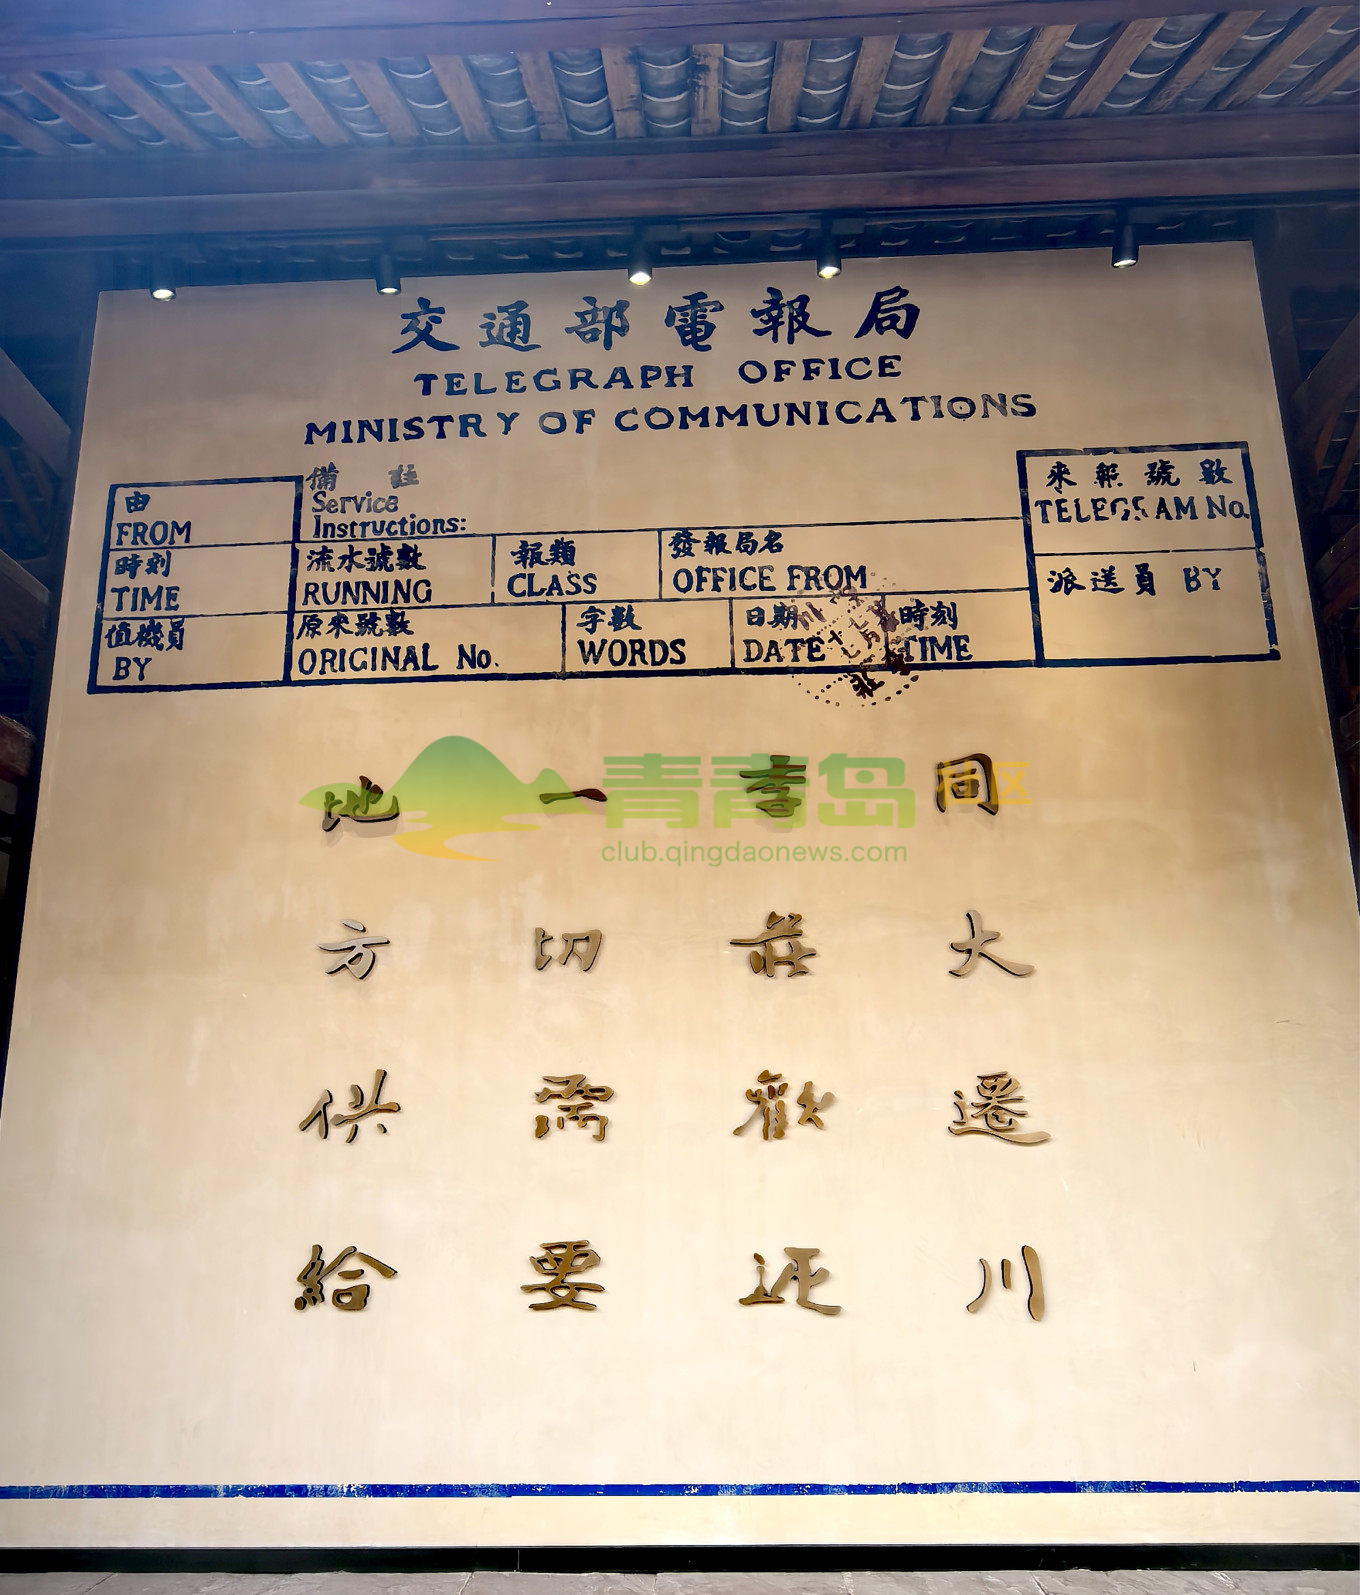 交通部電報局
TELEGRAPH OFFICE
MINISTRY OF COMMUNICATIONS
由
FROM
備註
Service
Instructions:
來報號數
TELEGRAM No.
時刻
TIME
流水號數
RUNNING
報類
CLASS
發報局名
OFFICE FROM
派送員 BY
值機員
BY
原來號數
ORIGINAL No.
字數
WORDS
日期
DATE
時刻
TIME
同大遷川
李莊歡迎
一切需要
地方供給
青青岛社区
club.qingdaonews.com